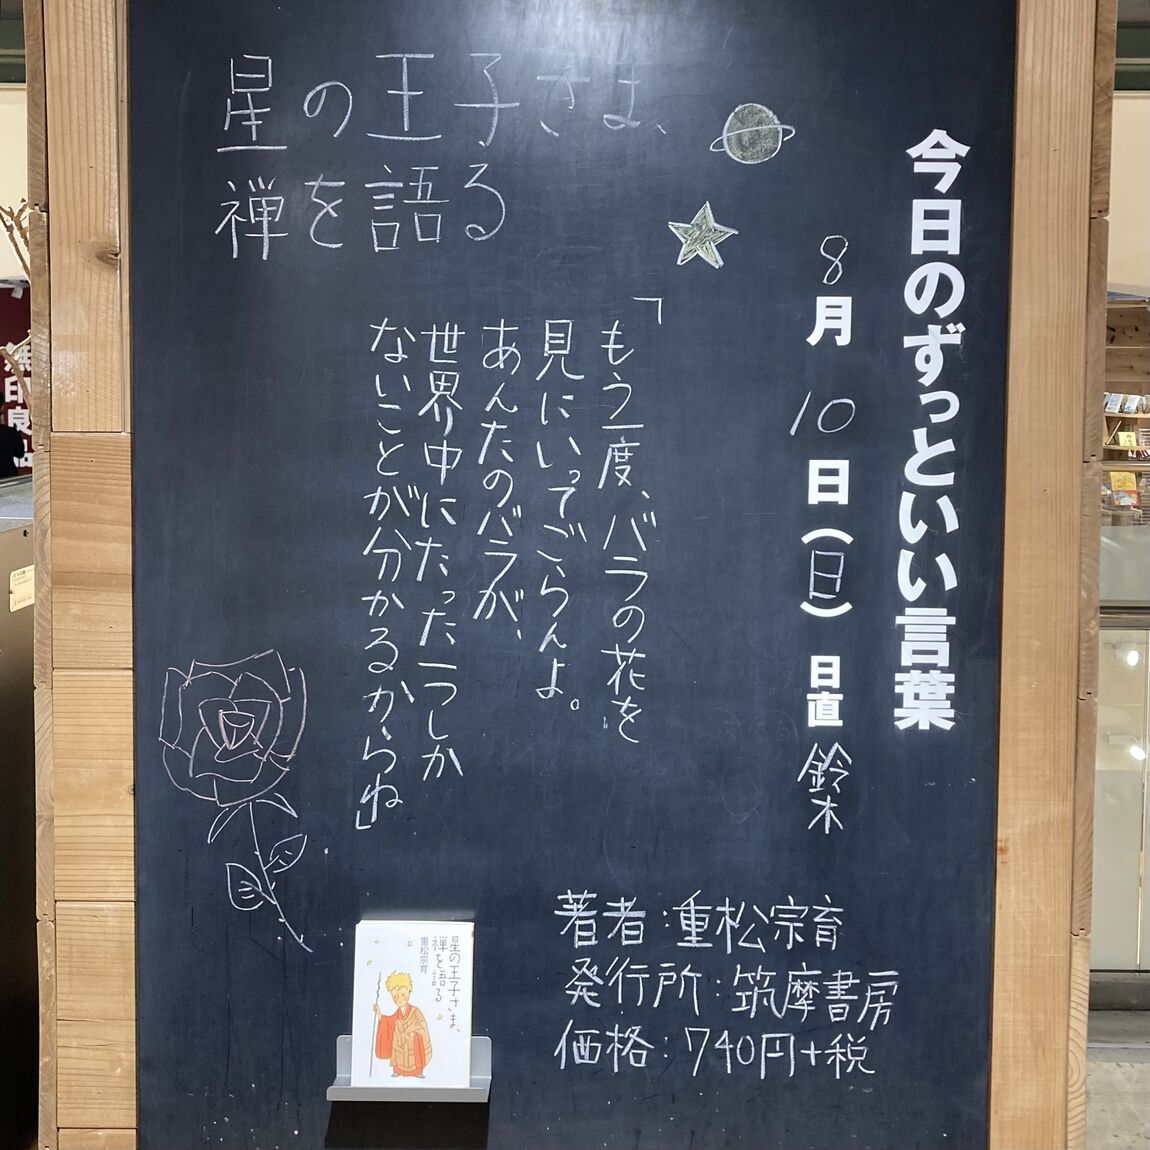 今日のずっといい言葉
8月10日(日)日直 鈴木
星の王子さま、
禅を語る
「もう一度、バラの花を
見にいってごらんよ。
あんたのバラが、
世界中にたった一つしか
ないことが分かるからね」
著者:重松宗育
発行所:筑摩書房
価格:740円+税
星の王子さま、
禅を語る
重松宗育
無印良品